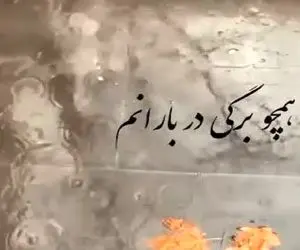 همچو برگی در بارانم